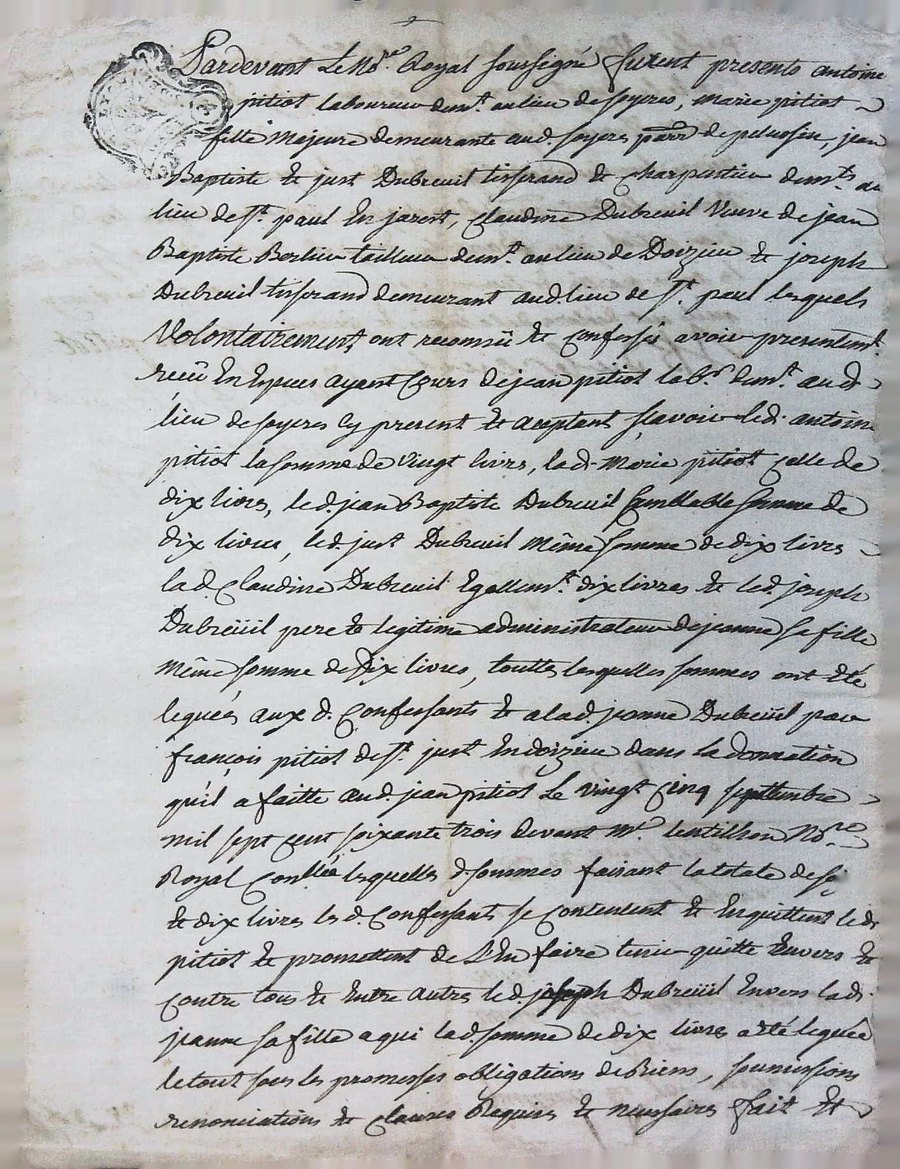 Pardevant Le No.re Royal soussegné furent presents antoine
pitiot laboureur dem.t au lieu de soyeres, marie pitiot
fille majeure demeurante aud. soyeres parr. de pelussin, jean
Baptiste & just Dubreuil tisserand & charpentier dem.ts au
lieu de s.t paul En jarest, Claudine Dubreuil Veuve de jean
Baptiste Berlier tailleur dem.t au lieu de Doizieu & joseph
Dubreuil tisserand demeurant aud lieu de s.t paul lesquels
Volontairement ont reconnû & confessé avoir presentem.t
reçû En Especes ayant Cours de jean pitiot lab.r dem.t au d.
lieu de soyeres Cy present & aceptant sçavoir led. antoine
pitiot la somme de vingt livres, lad. Marie pitiot Celle de
dix livres, led. jean Baptiste Dubreuil semblable somme de
dix livres, led. just Dubreuil même somme de dix livres
lad. Claudine Dubreuil Egallem.t dix livres & led. joseph
Dubreüil pere & legitime administrateur de jeanne sa fille
même somme de dix livres, touttes lesquelles sommes ont été
leguées aux d. Confessants & a lad. jeanne Dubreüil par
françois pitiot de s.t just En doizieu dans la donnation
qu'il a faitte aud. jean pitiot Le vingt Cinq septtembre
mil sept cent soixante trois devant M.e lentillon No.re
Royal lesquelles d. sommes faisant la totale de soix.te
& dix livres les d. Confessants se Contentent & En quittent led.
pitiot & promettent de L'En faire tenir quitte Envers &
Contre tous & Entre autres led. joseph Dubreüil Envers lad.
jeanne sa fille a qui lad. somme de dix livres a été leguée
le tout sous les promesses obligations de Biens, soumissions
renonciations & clauses Requises & necessaires fait &